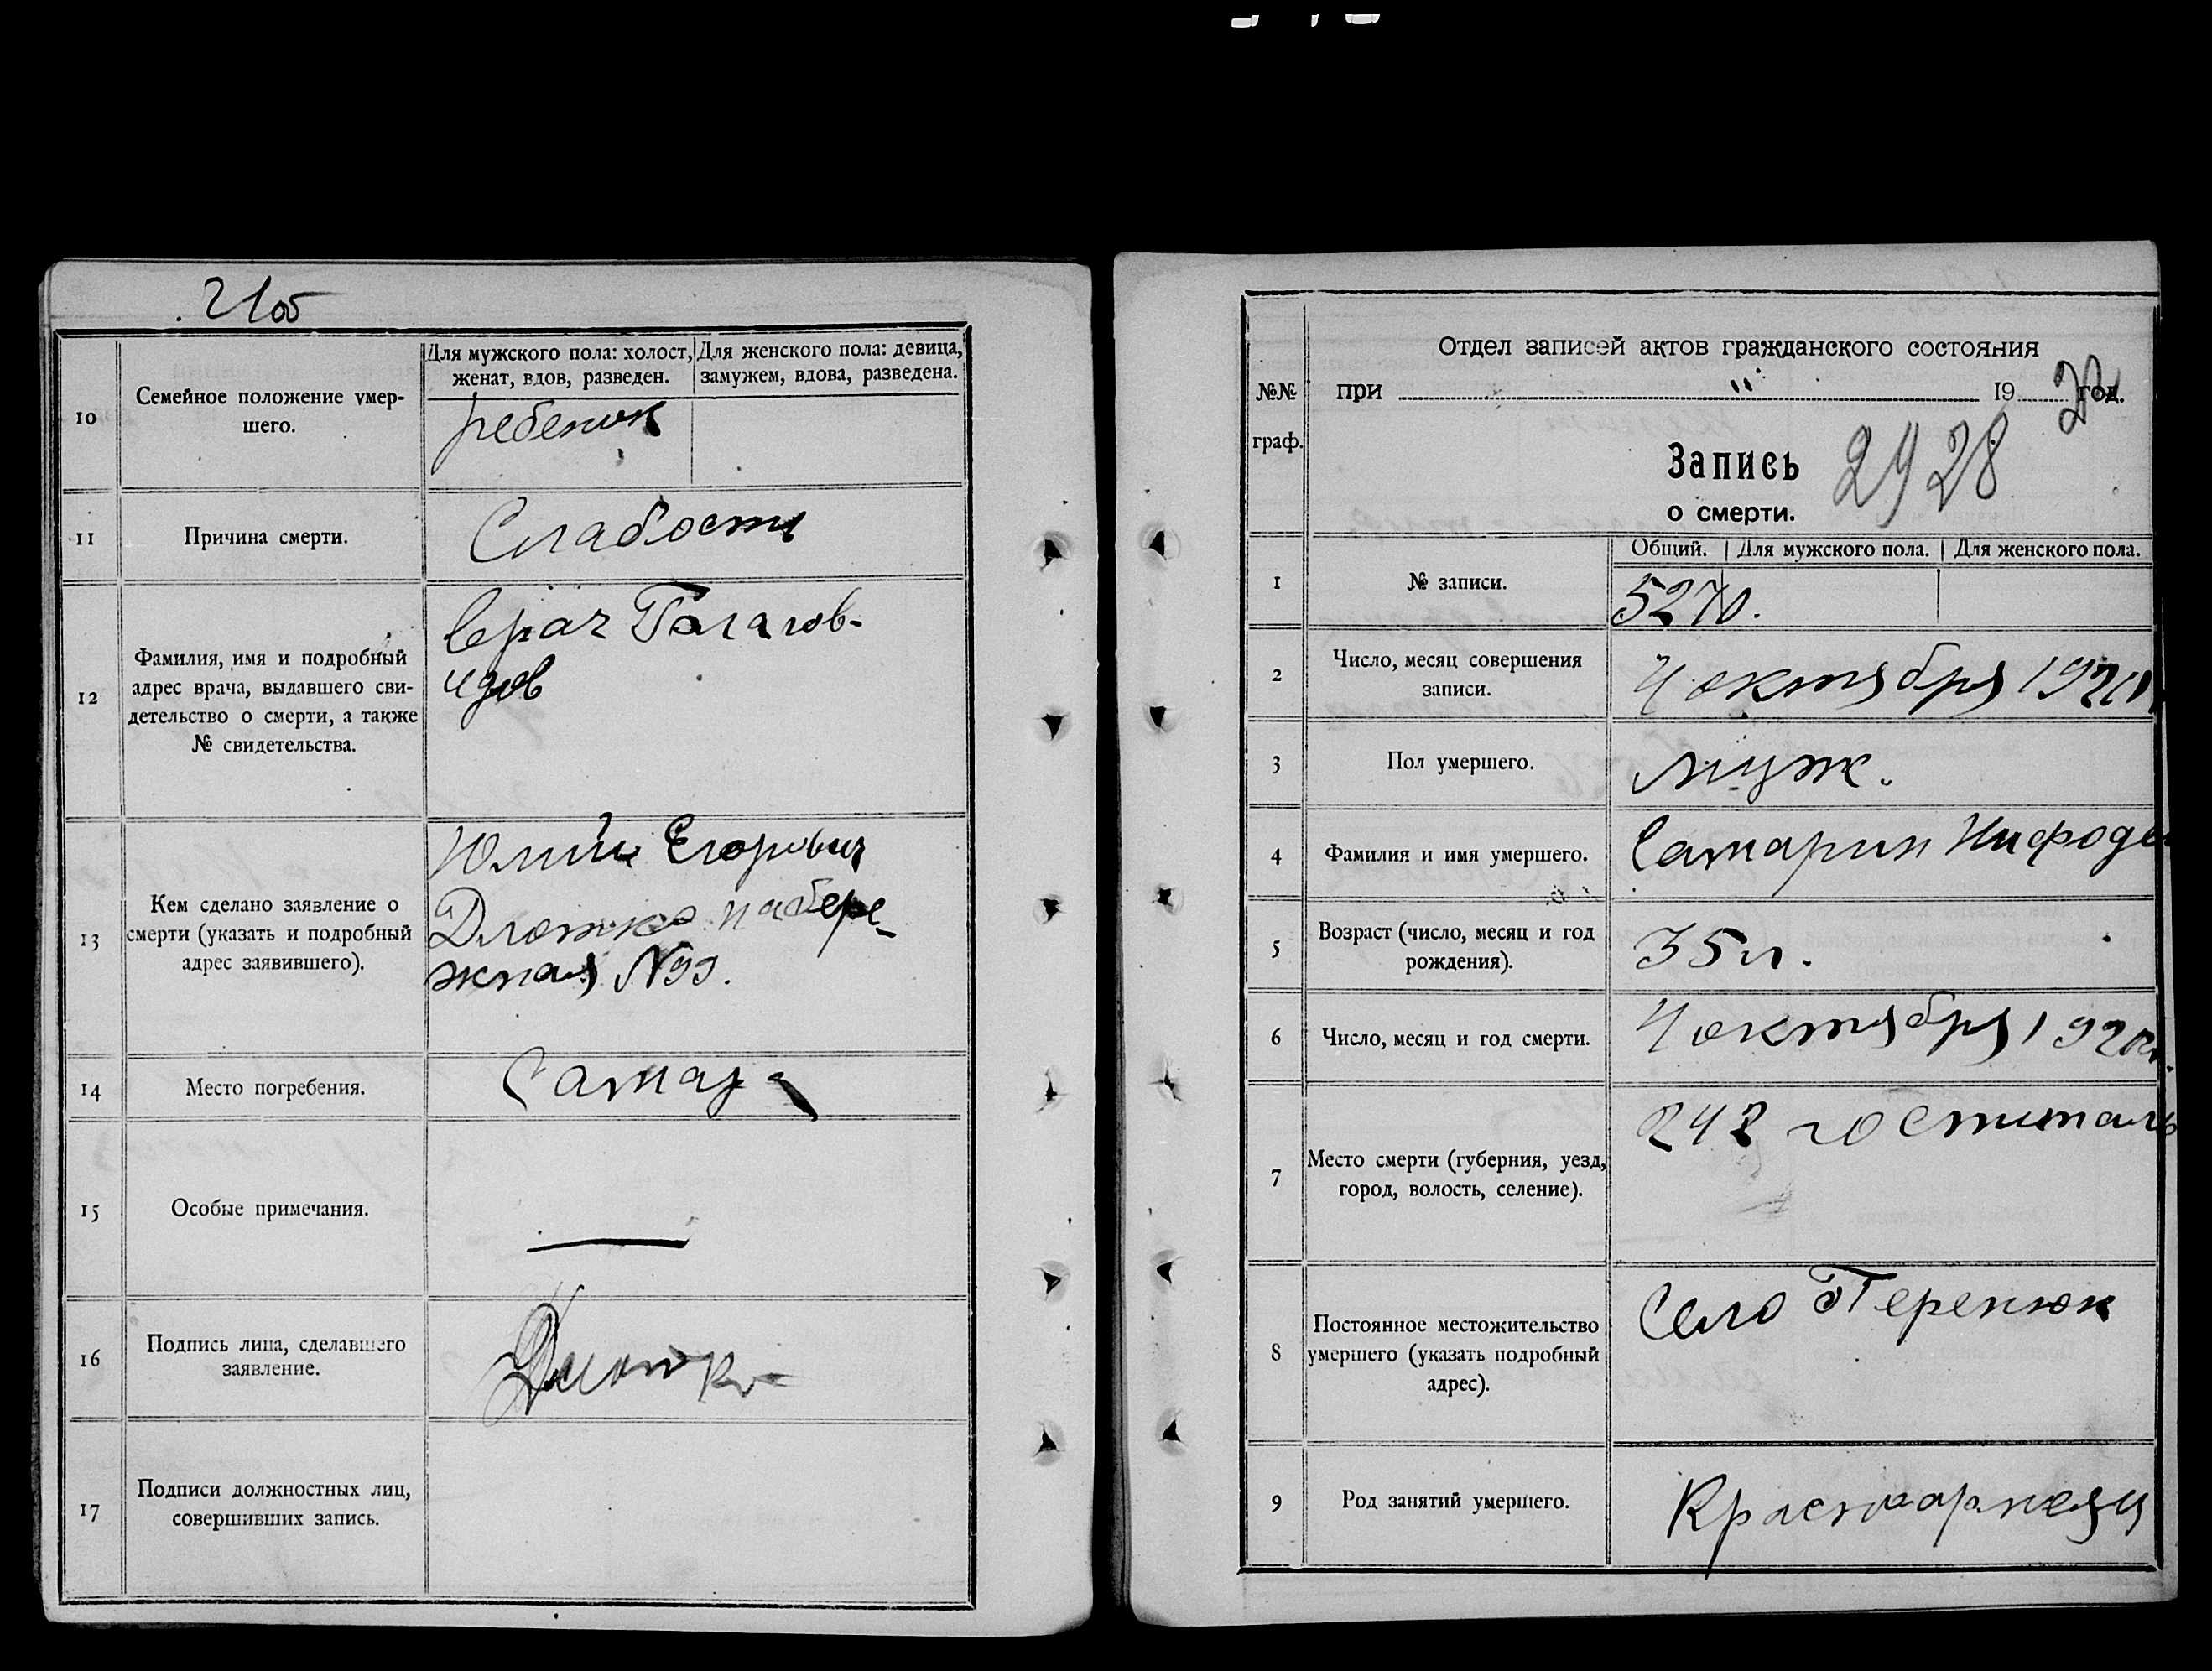 21об
10
Семейное положение умер-
шего.
Для мужского пола: холост,
женат, вдов, разведен.
Для женского пола: девица,
замужем, вдова, разведена.
ребенок
11
Причина смерти.
Слабость
12
Фамилия, имя и подробный
адрес врача, выдавшего сви-
детельство о смерти, а также
№ свидетельства.
врач
13
Кем сделано заявление о
смерти (указать и подробный
адрес заявившего).
Юлий Егорович
Длотко набере-
жная N99.
14
Место погребения.
Самара
15
Особые примечания.
16
Подпись лица, сделавшего
заявление.
Длотко
17
Подписи должностных лиц,
совершивших запись.
№№
граф.
Отдел записей актов гражданского состояния
при 19 20 год.
Запись
2928
о смерти.
Общий. Для мужского пола. Для женского пола.
1
№ записи.
5270.
2
Число, месяц совершения
записи.
4 октября 1920
3
Пол умершего.
муж.
4
Фамилия и имя умершего.
Самарин Нифодей
5
Возраст (число, месяц и год
рождения).
35 л.
6
Число, месяц и год смерти.
4 октября 1920г.
7
Место смерти (губерния, уезд,
город, волость, селение).
242 госпиталь
8
Постоянное местожительство
умершего (указать подробный
адрес).
Село Перекюк
9
Род занятий умершего.
Красноармеец